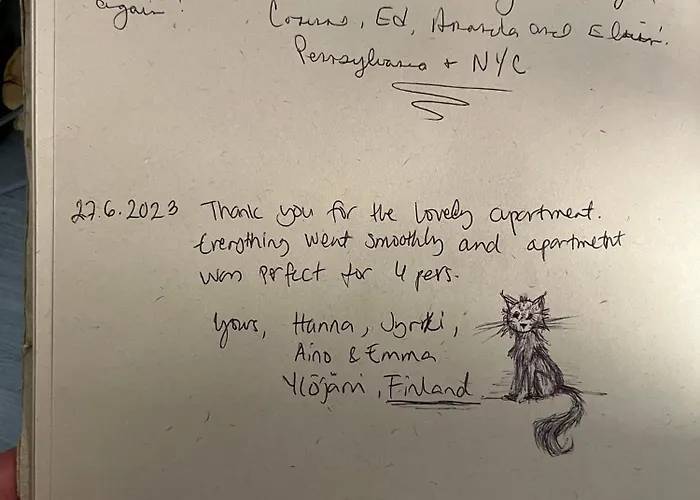 again!
Ed, Amanda and
Pennsylvania + NYC
27.6.2023 Thank you for the lovely apartment.
Everything went smoothly and apartment
was perfect for 4 pers.
Yours, Hanna, Jyrki,
Aino & Emma
Ylöjärvi, Finland